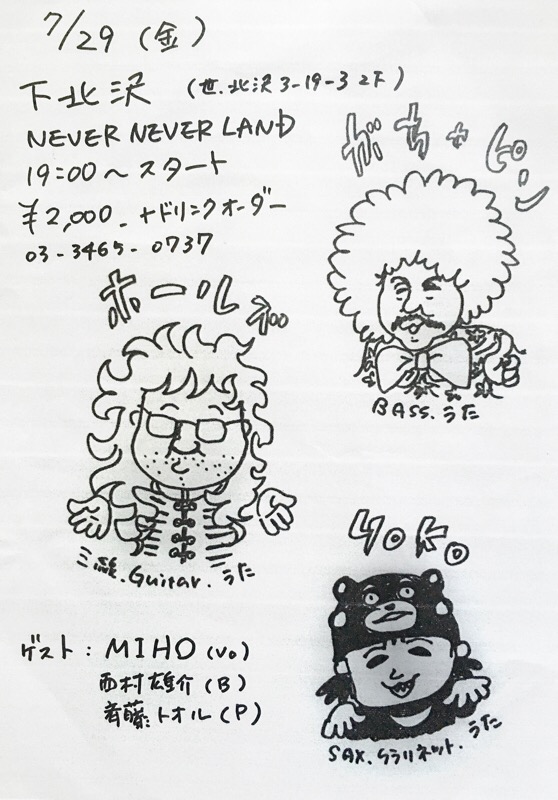 7/29(金)
下北沢 (世.北沢3-19-3 2F)
NEVER NEVER LAND
19:00〜スタート
¥2,000.+ドリンクオーダー
03-3465-0737
ガチャピン
BASS.うた
ホールズ
三線.Guitar.うた
YoKo
SAX.クラリネット.うた
ゲスト:MIHO(Vo)
西村雄介(B)
斉藤トオル(P)